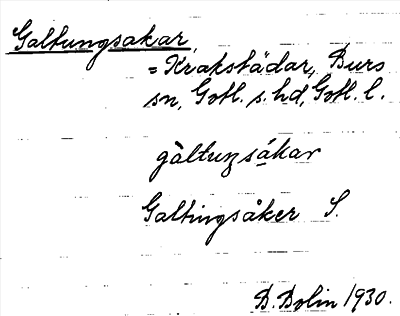 Galtungsakar,
= Krakstädar, Burs
sn, Gotl. s. hd, Gotl. l.
gàltuŋsákar
Galtingsåker S.
D. Dolin 1930.